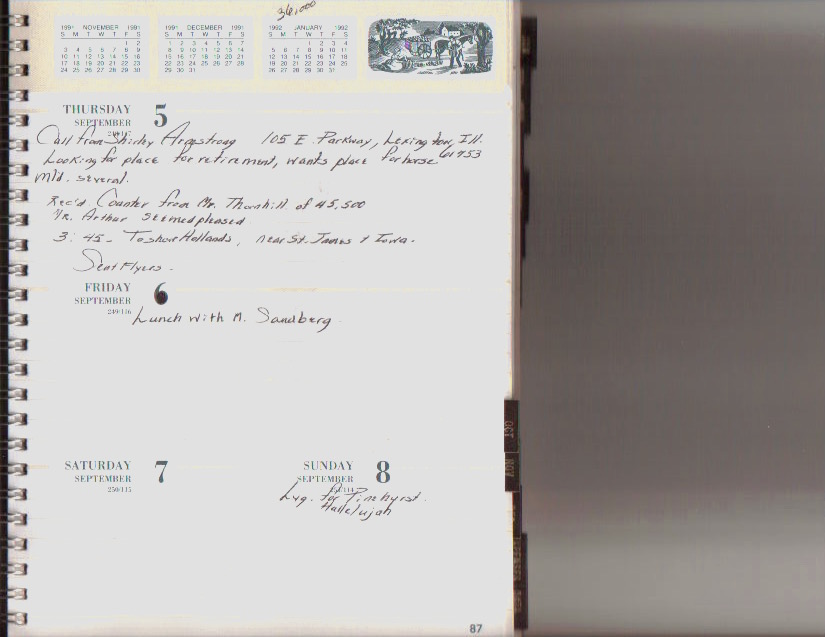 36,000
1991 NOVEMBER 1991
S M T W T F S
1 2
3 4 5 6 7 8 9
10 11 12 13 14 15 16
17 18 19 20 21 22 23
24 25 26 27 28 29 30
1991 DECEMBER 1991
S M T W T F S
1 2 3 4 5 6 7
8 9 10 11 12 13 14
15 16 17 18 19 20 21
22 23 24 25 26 27 28
29 30 31
1992 JANUARY 1992
S M T W T F S
1 2 3 4
5 6 7 8 9 10 11
12 13 14 15 16 17 18
19 20 21 22 23 24 25
26 27 28 29 30 31
THURSDAY 5
SEPTEMBER
Call from Shirley Armstrong 105 E. Parkway, Lexington, Ill.
Looking for place for retirement, wants place for horse 61753
Mld. several.
Rec'd Counter from Mr. Thornhill of 45,500
Mr. Arthur seemed pleased
3:45 - To show Hollands, near St. James & Iowa.
Sent Flyers.
FRIDAY 6
SEPTEMBER
249/116
Lunch with M. Sandberg
SATURDAY 7
SEPTEMBER
250/115
SUNDAY 8
SEPTEMBER
Lvg. for Pinehurst.
Hallelujah
OCT
NOV
87